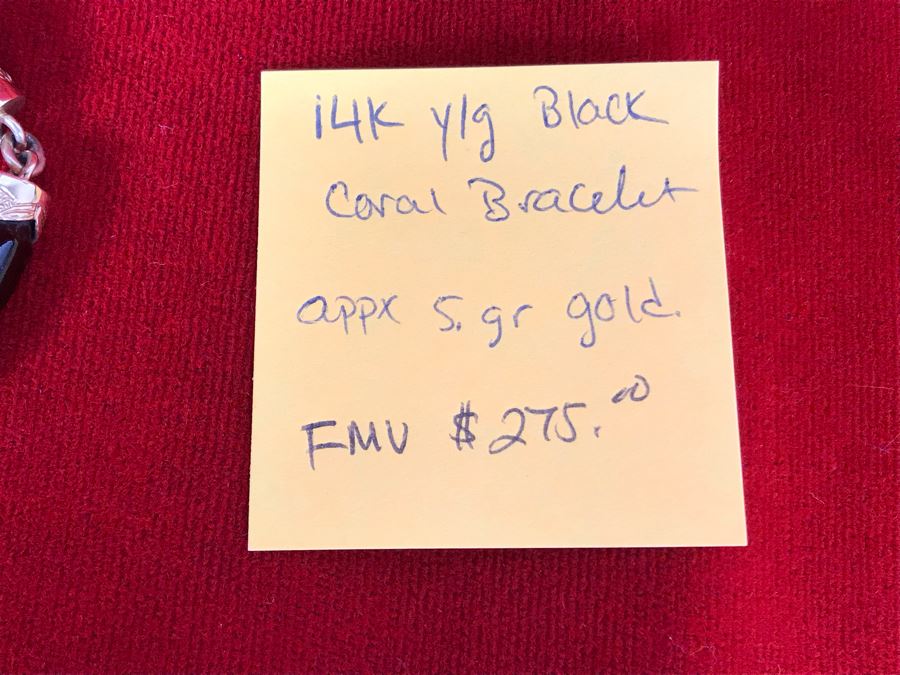 14K y/g Black
Coral Bracelet
appx 5. gr gold.
FMV $275.00